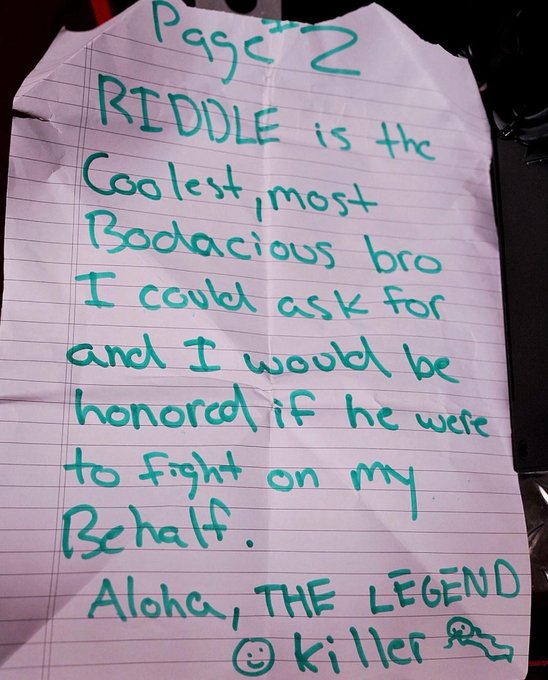 Page # 2
RIDDLE is the
Coolest, most
Bodacious bro
I could ask for
and I would be
honored if he were
to fight on my
Behalf.
Aloha, THE LEGEND
killer